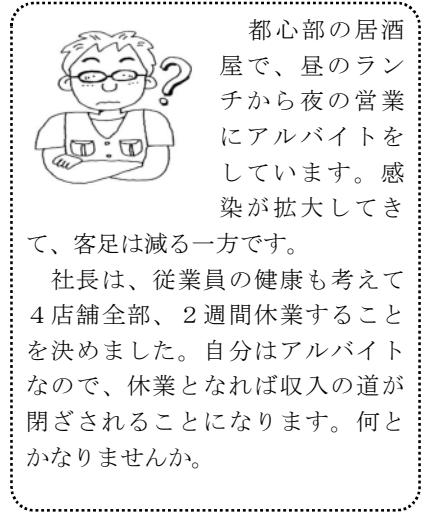 都心部の居酒
屋で、昼のラン
チから夜の営業
にアルバイトを
しています。感
染が拡大してき
て、客足は減る一方です。
社長は、従業員の健康も考えて
４店舗全部、２週間休業すること
を決めました。自分はアルバイト
なので、休業となれば収入の道が
閉ざされることになります。何と
かなりませんか。